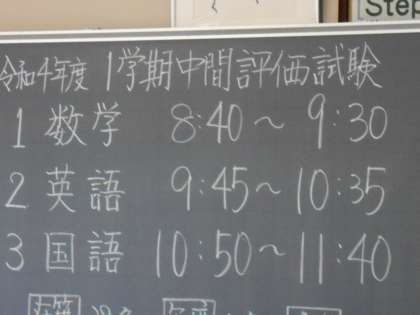 Step
令和4年度 1学期中間評価試験
1 数学 8:40～9:30
2 英語 9:45～10:35
3 国語 10:50～11:40